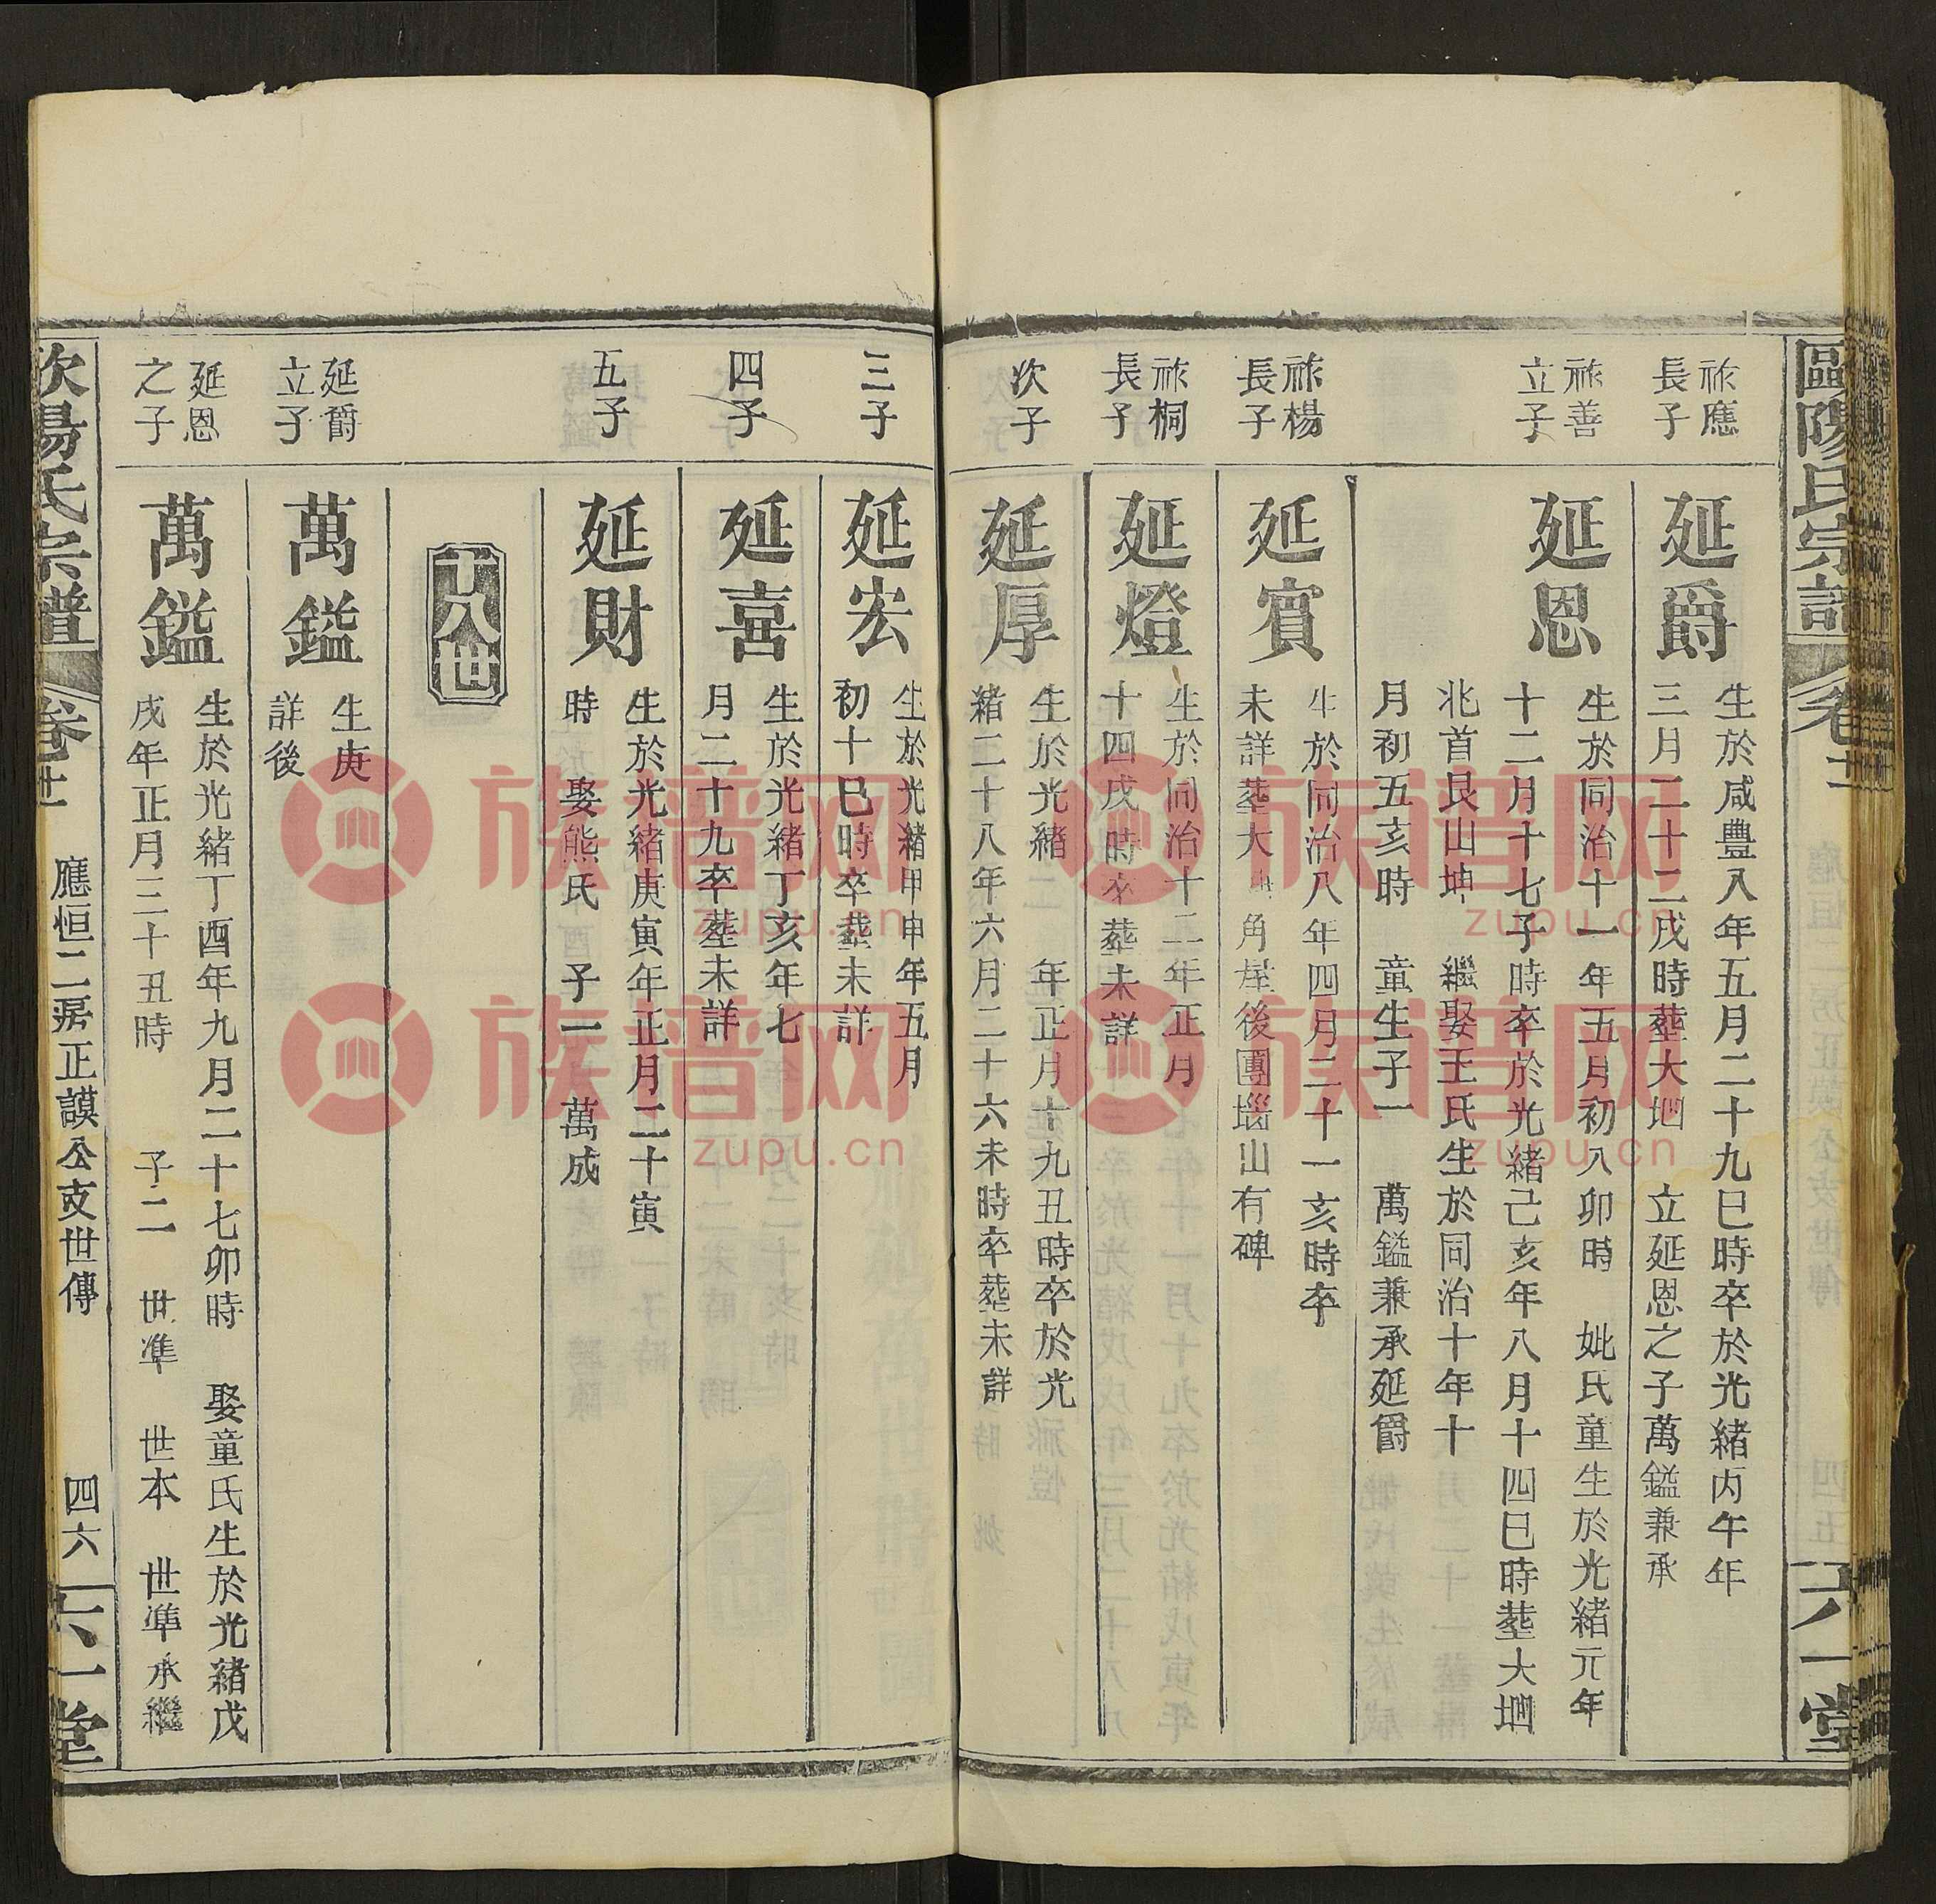 歐陽氏宗譜
卷廿
六一堂
祚應
長子
延爵
生於咸豐八年五月二十九巳時卒於光緒丙午年
三月二十二戌時塟大垇 立延恩之子萬鎰兼承
祚善
立子
延恩
生於同治十一年五月初八卯時 妣氏童生於光緒元年
十二月十七子時卒於光緒己亥年八月十四巳時塟大垇
北首艮山坤 繼娶王氏生於同治十年十
月初五亥時 童生子一 萬鎰兼承延爵
祚楊
長子
延賓
生於同治八年四月二十一亥時卒
未詳塟大 角屋後團墈山有碑
祚桐
長子
延燈
生於同治十二年正月
十四戌時卒塟未詳
次子
延厚
生於光緒二 年正月十九丑時卒於光
緒二十八年六月二十六未時卒塟未詳
三子
延宏
生於光緒甲申年五月
初十巳時卒塟未詳
四子
延喜
生於光緒丁亥年七
月二十九卒塟未詳
五子
延財
生於光緒庚寅年正月二十寅
時 娶熊氏 子一 萬成
十八世
延爵
立子
萬鎰
生庚
詳後
延恩
之子
萬鎰
生於光緒丁酉年九月二十七卯時 娶童氏生於光緒戊
戌年正月三十丑時 子二 世準 世本 世準承繼
歐陽氏宗譜
卷廿
應恒二房正謨公支世傳
四六
六一堂
族譜网
zupu.cn
族譜网
zupu.cn
族譜网
zupu.cn
族譜网
zupu.cn